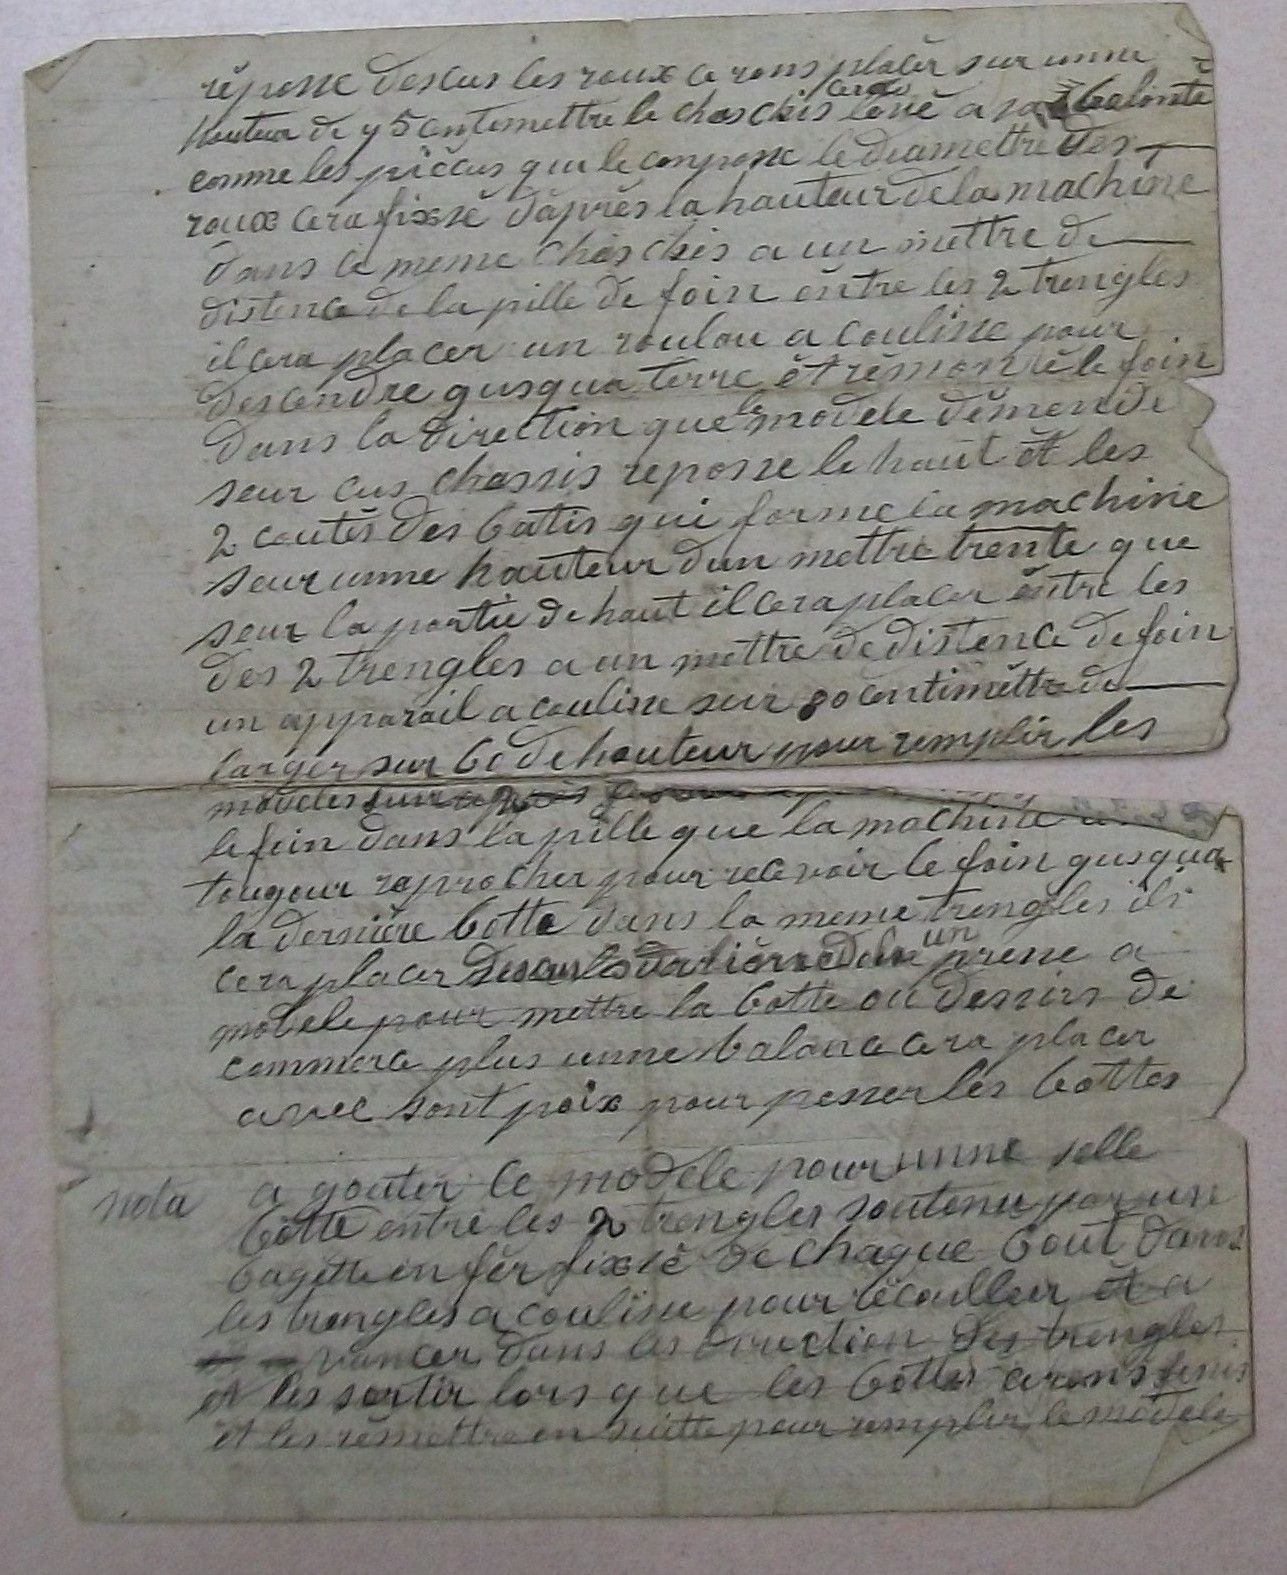 réposse descus les roux ce rons placér sur unne
hauteur de 75 centemettre le chaschis cera lové a sa volonté
comme les piéceus qui le conposse le diamettre des
roux cera fixsé daprés la hauteur de la machine
dans le meme chaschis a un mettre de
distence de la pille de foin éntre les 2 trengles
il cera placer un roulou a coulisse pour
descendre gusqua térre ét rémonté le foin
dans la direction que le modele démende
seur ceus chassis reposse le haut ét les
2 coutés des batis qui forme la machine
seur unne hauteur dun mettre trente que
seur la partie de haut il cera placer éntre les
des 2 trengles a un mettre de distence de foin
un apparail a coulisse seur 80 centimétre de
larger sur 60 de hauteur pour remplir les
modeles
le foin dans la pille que la machine
tougour raprocher pour recevoir le foin gusqua
la derniére botte dans la meme trengles ils
cera placer un presse a
modele pour mettre la botte ou dessirs de
commerce plus unne balance cera placer
avec sont poix pour pesser les bottes
nota a gouter le modéle pour unne selle
botte entre les 2 trengles soutenu par un
bagette en fér fixsé de chaque bout dans
les trengles a coulisse pour récculler ét a
vancer dans les diruction des trengles
et les sortir lors que les bottes cerons finis
et les rémettre en suitte pour remplir le modele